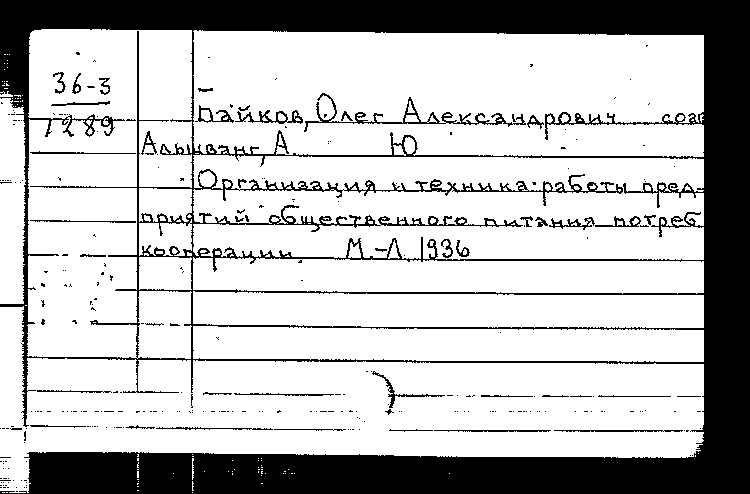 36-3
1289
Байков, Олег Александрович соав
Альшванг, А. Ю
Организация и техника работы пред-
приятий общественного питания потреб.
кооперации. М.-Л. 1936